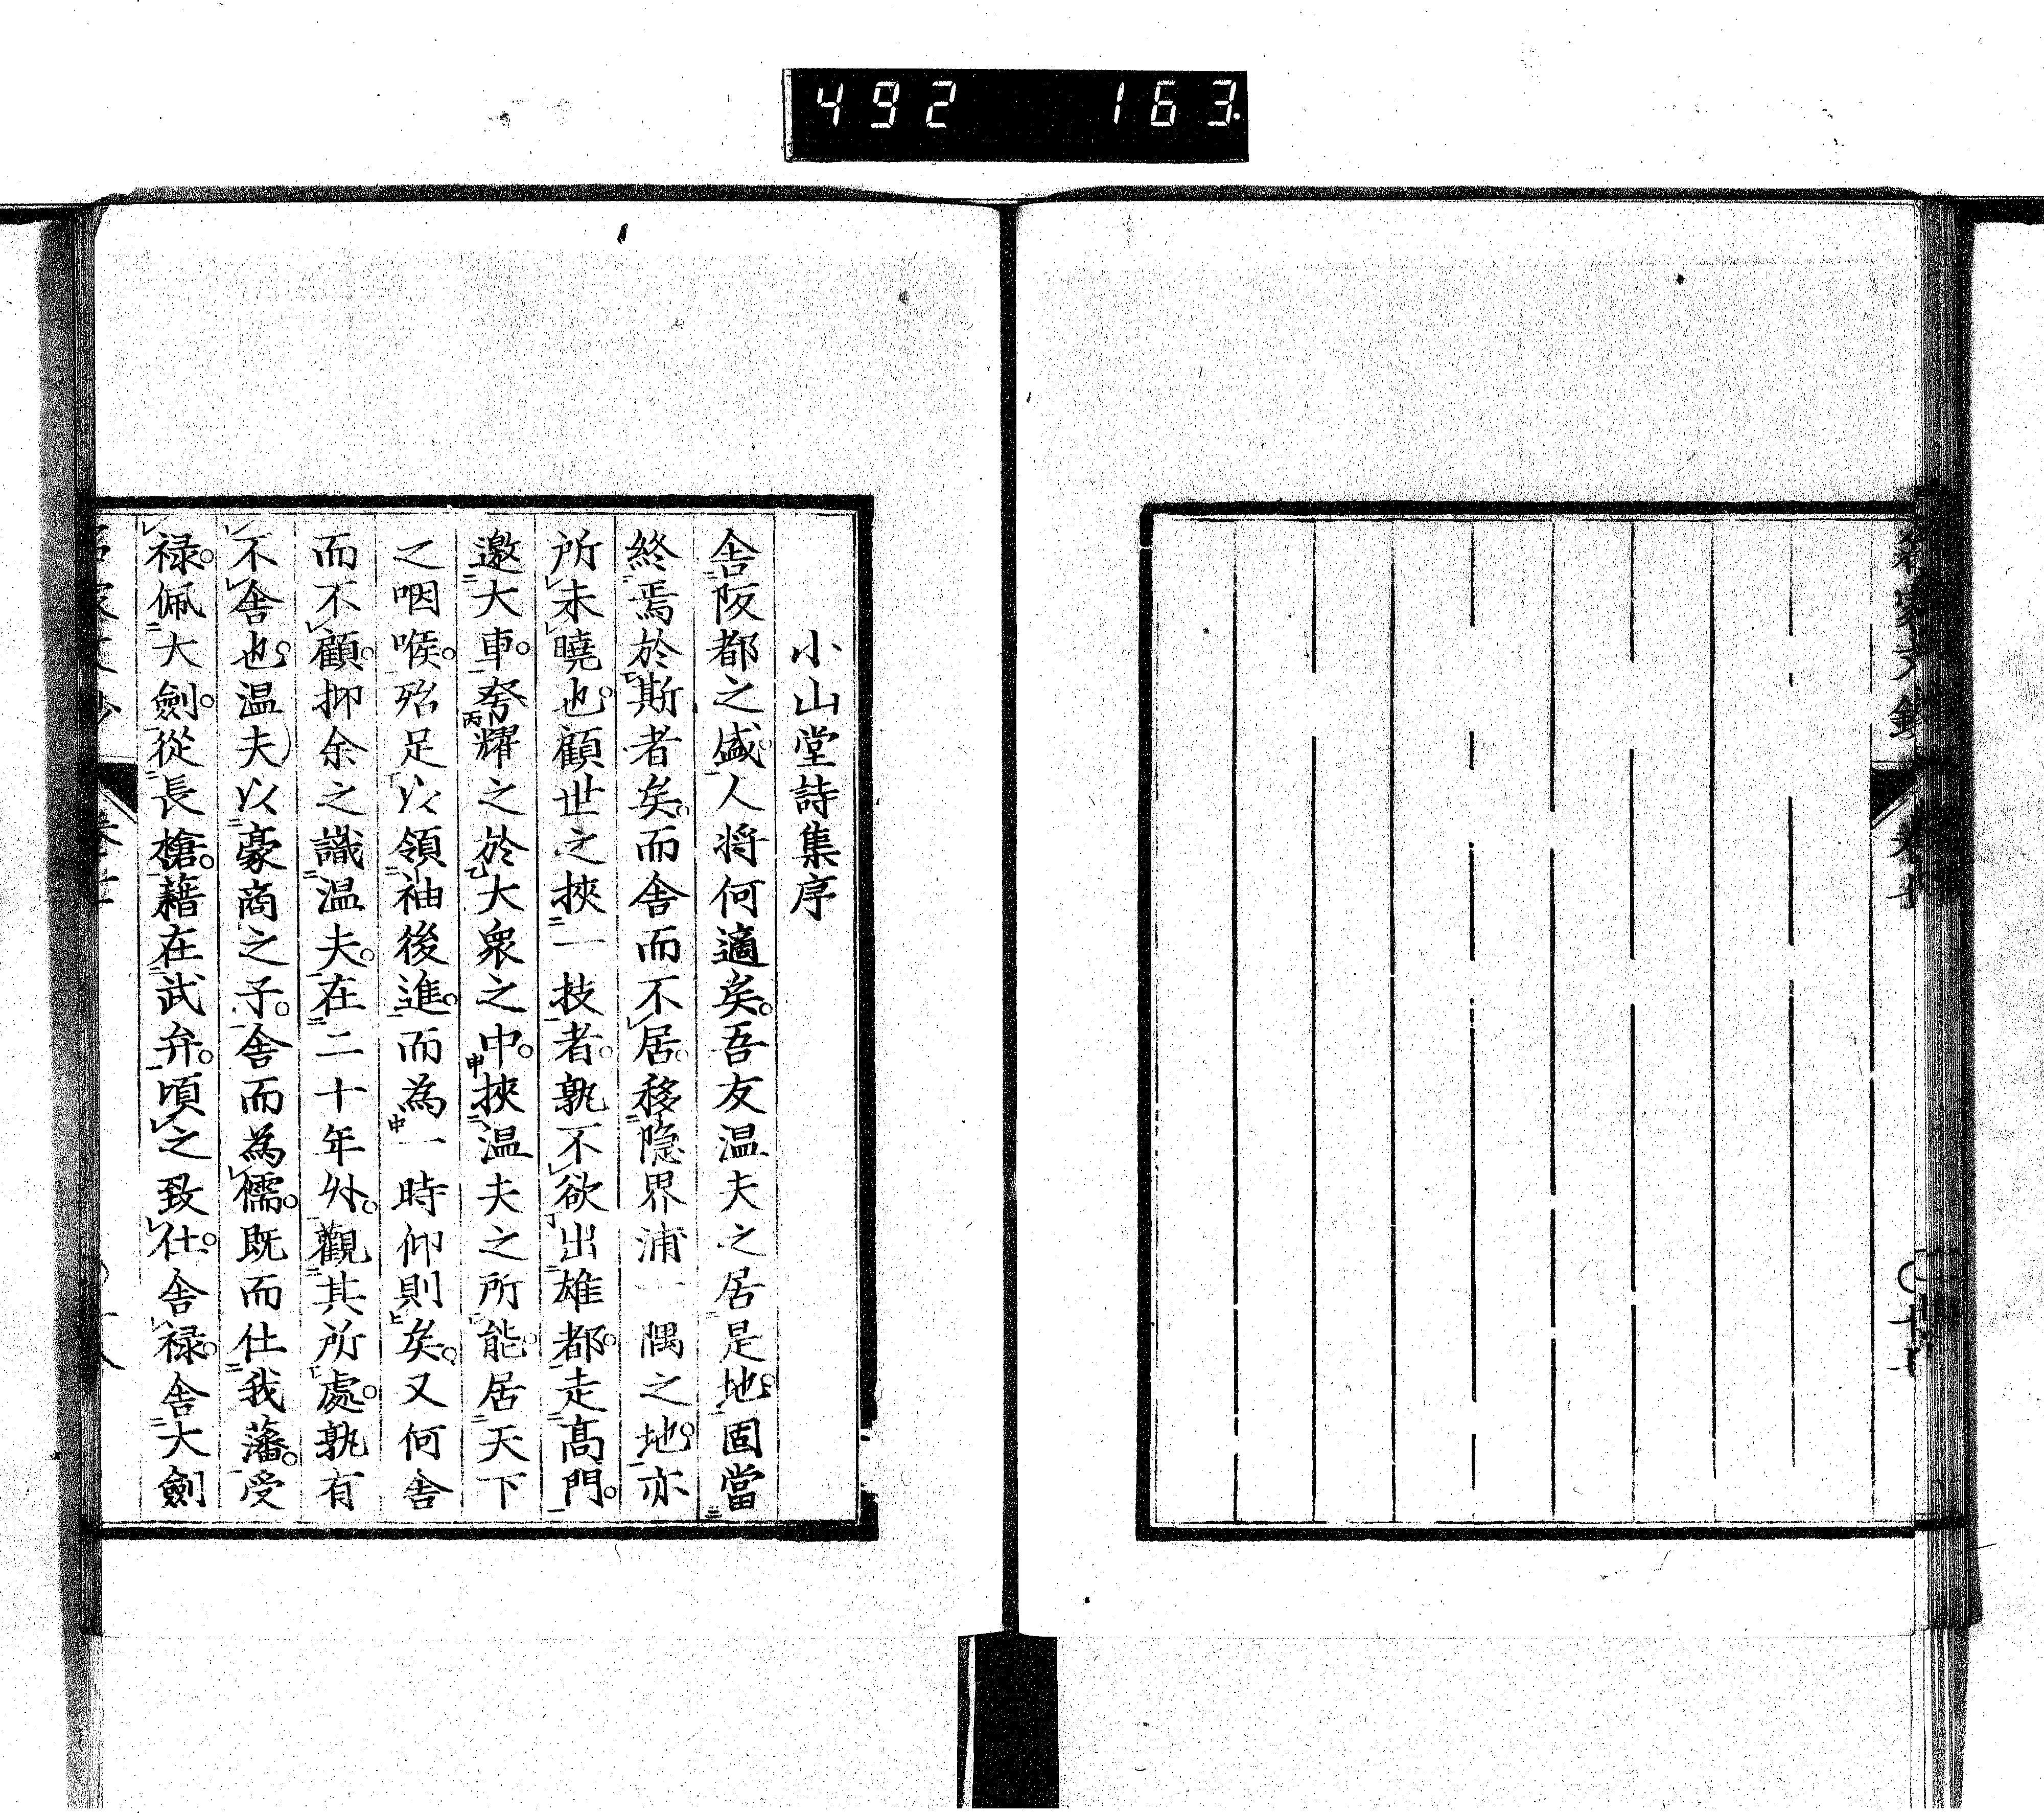 492 163
小山堂詩集序
舎阪都之盛人将何適矣吾友温夫之居是地固當
終焉於斯者矣而舎而不居移隠界浦一隅之地亦
所未曉也顧世之挾一技者孰不欲出雄都走髙門
邀大車夸耀之於大衆之中挾温夫之所能居天下
之咽喉殆足以領袖後進而為一時仰則矣又何舎
而不顧抑余之識温夫在二十年外觀其所處孰有
不舎也温夫以豪商之子舎而為儒既而仕我藩受
禄佩大劍從長槍藉在武弁頃之致仕舎禄舎大劍